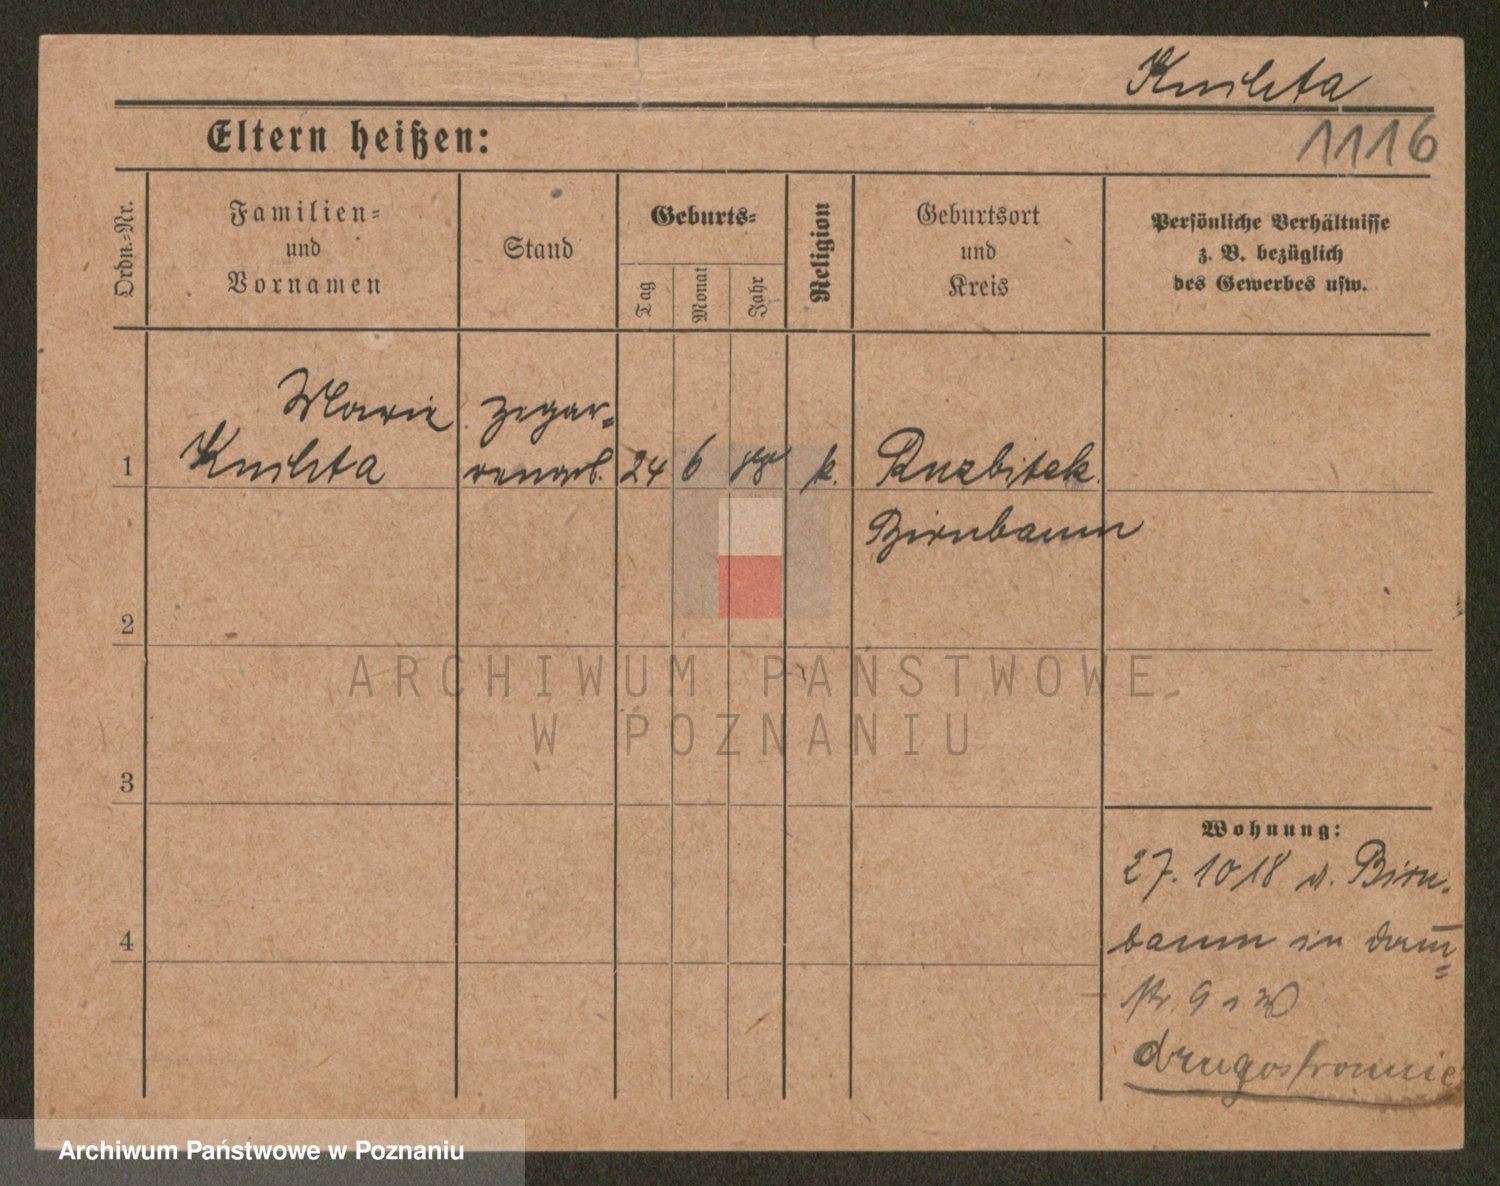 Kmileta
1116
Eltern heißen:
Ordn.-Nr.
Familien-
und
Vornamen
Stand
Geburts-
Tag
Monat
Jahr
Religion
Geburtsort
und
Kreis
Persönliche Verhältnisse
z. B. bezüglich
des Gewerbes usw.
Marie
Kmileta
24
6
88
k.
Birnbaum
1
2
3
4
Wohnung:
27. 10 18 v. Birn-
baum in
str. 9
drugostronnie
ARCHIWUM PAŃSTWOWE
W POZNANIU
Archiwum Państwowe w Poznaniu